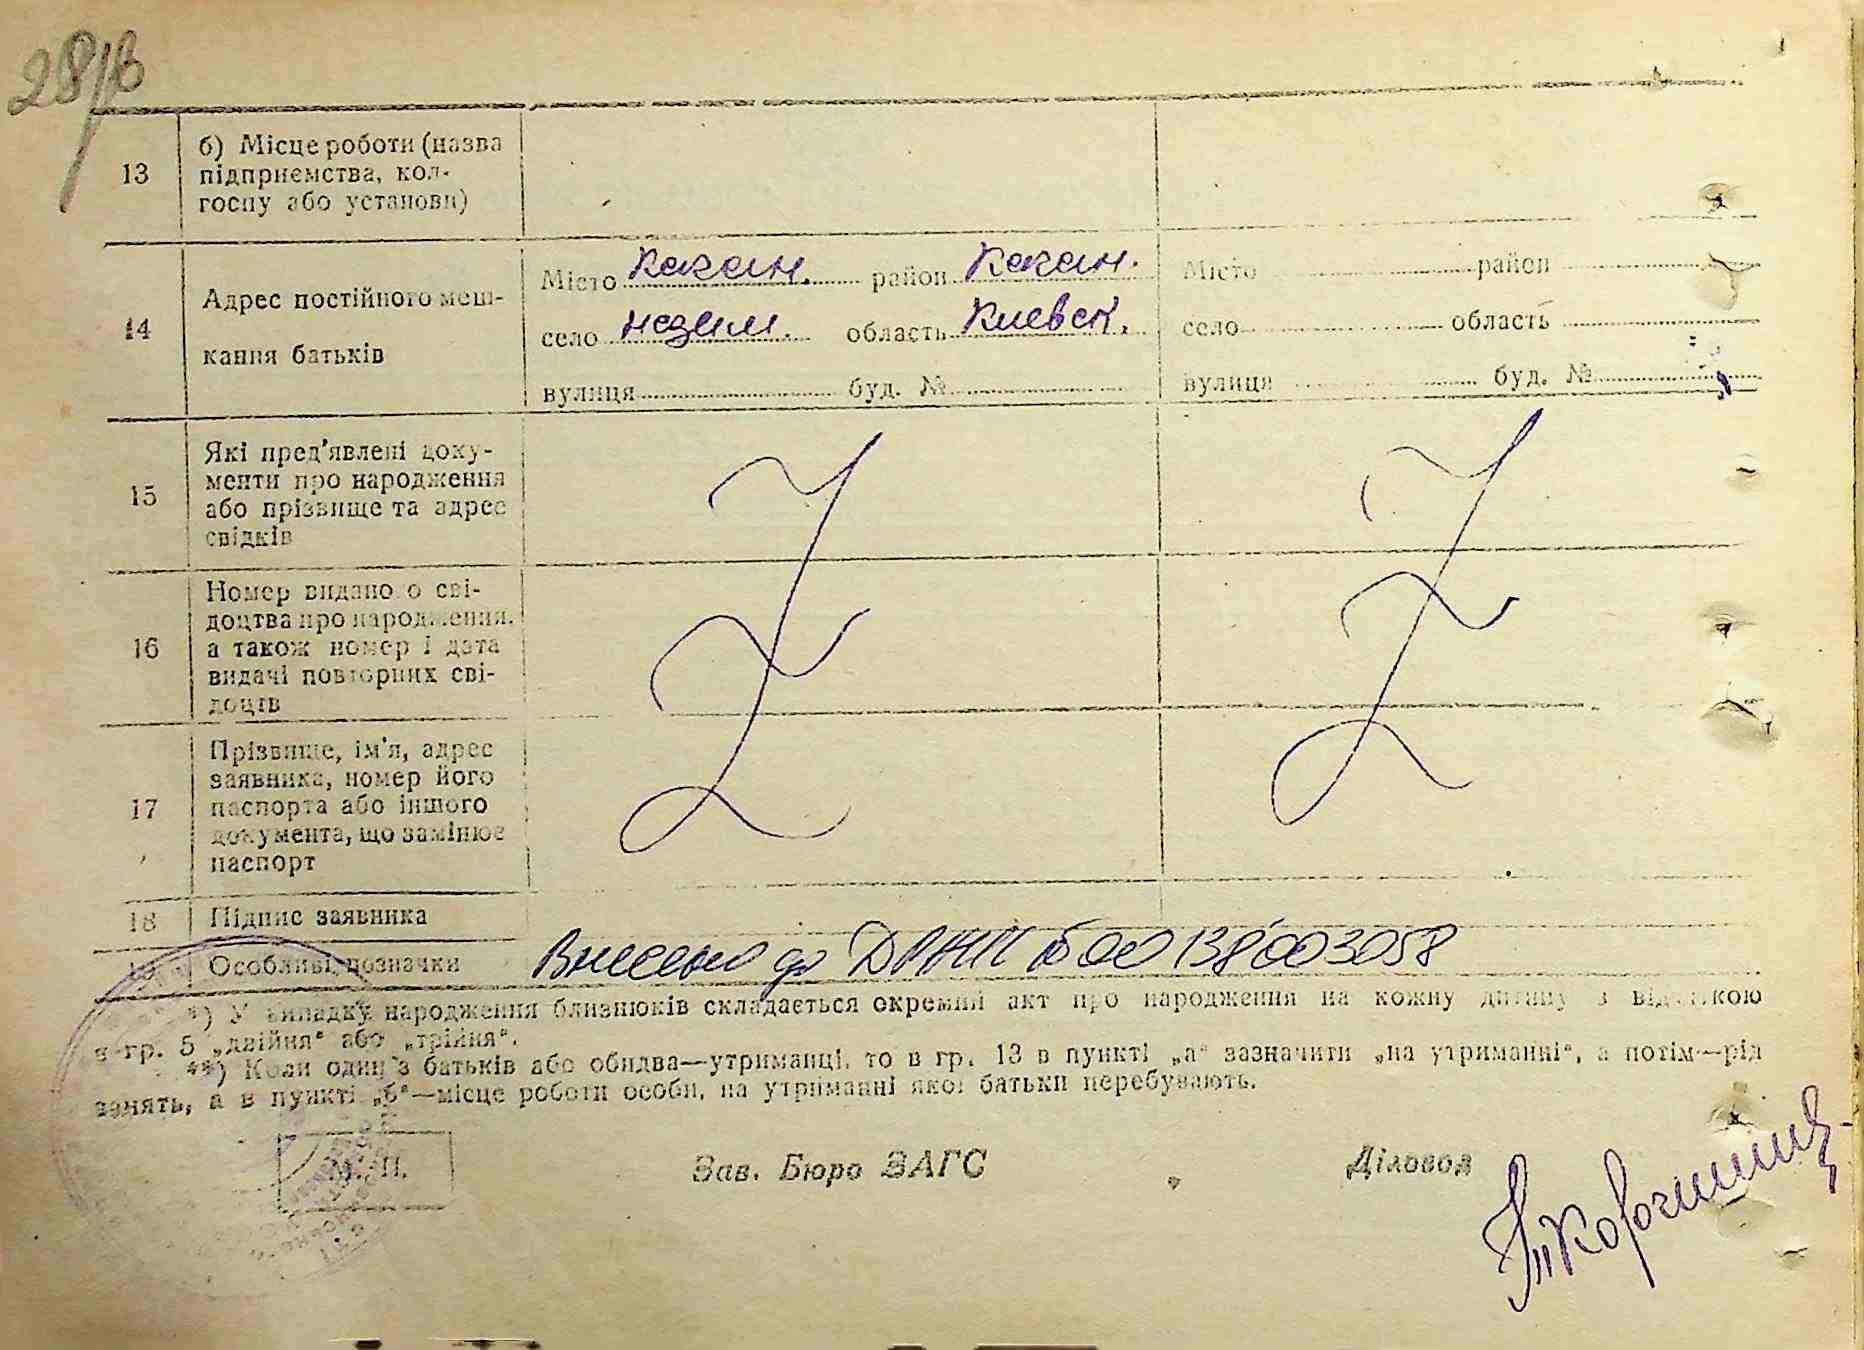 13
б) Місце роботи (назва
підприємства, кол-
госпу або установи)
14
Адрес постійного меш-
кання батьків
Місто Каган. район Каган.
село область Киевск.
вулиця буд. №
Місто район
село область
вулиця буд. №
15
Які пред'явлені доку-
менти про народження
або прізвище та адрес
свідків
16
Номер видано о сві-
доцтва про народження,
а також номер і дата
видачі повторних сві-
доцтв
17
Прізвище, ім'я, адрес
заявника, номер його
паспорта або іншого
документа, що замінює
паспорт
18 Підпис заявника
19 Особливі дозначки Внесено до 00138003058
*) У випадку народження близнюків складається окремий акт про народження на кожну дитину з відміткою
в гр. 5 „двійня“ або „трійня“.
**) Коли один з батьків або обидва—утриманці, то в гр. 13 в пункті „а“ зазначити „на утриманні“, а потім—рід
занять, а в пункті „б“—місце роботи особи, на утриманні якої батьки перебувають.
М. П.
Зав. Бюро ЗАГС Діловод